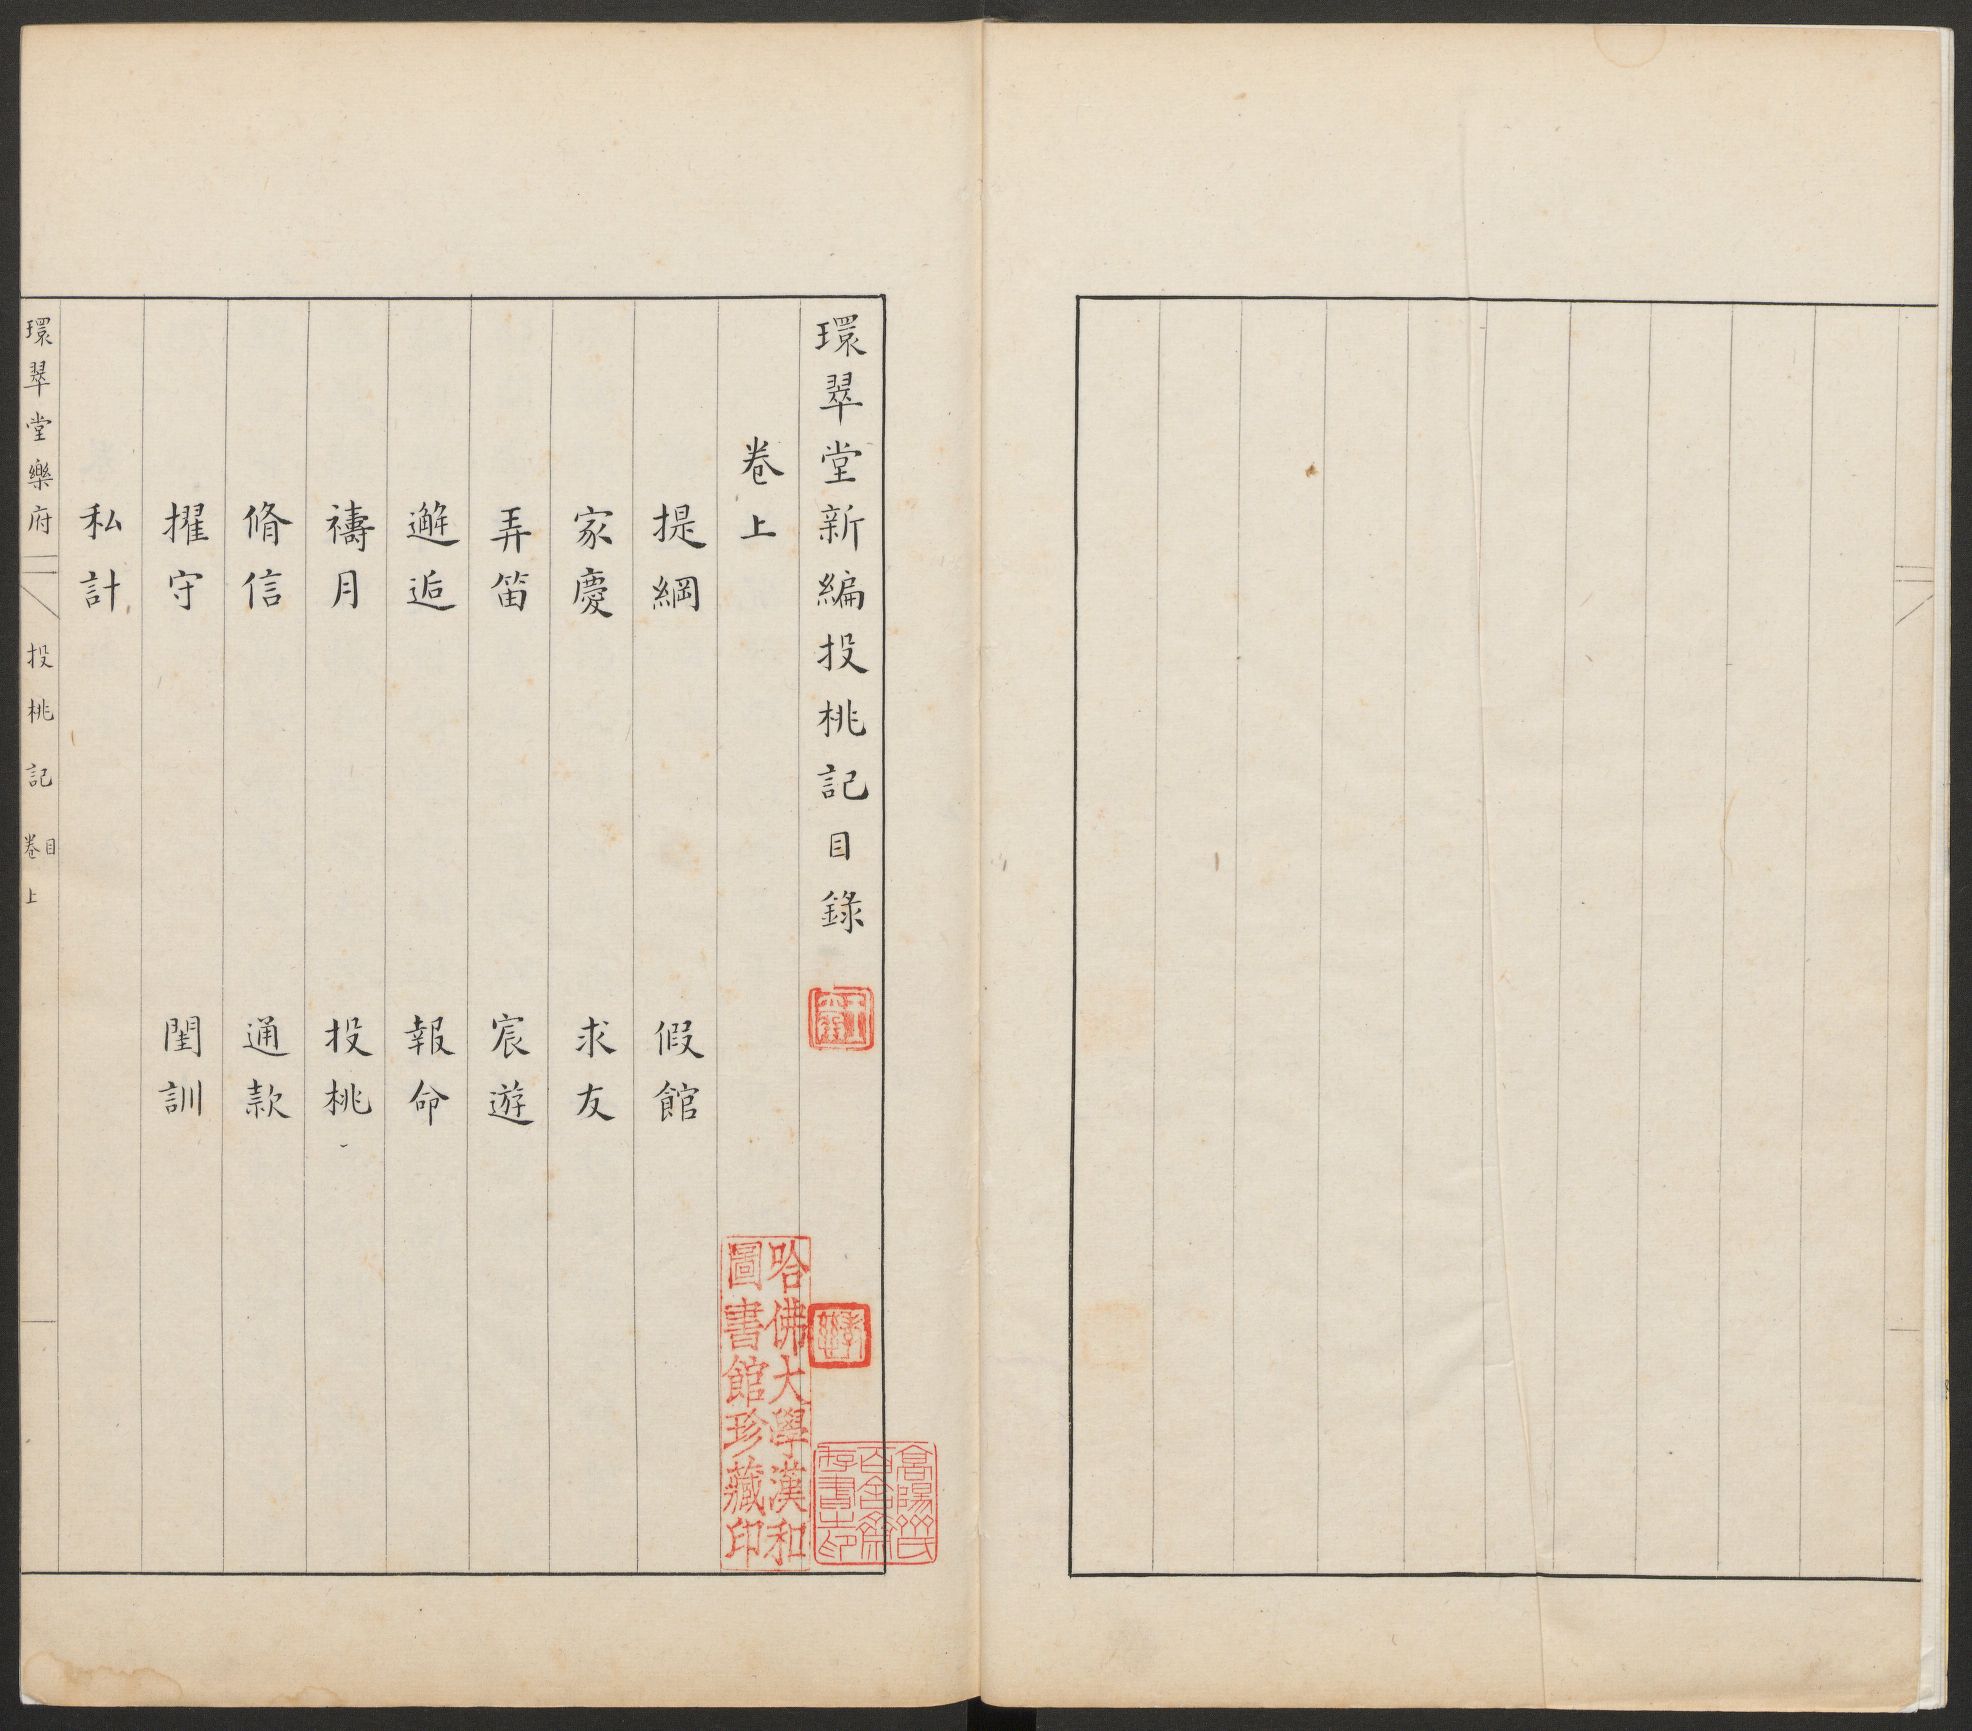 環翠堂新編投桃記目錄
卷上
提綱 假館
家慶 求友
弄笛 宸遊
邂逅 報命
禱月 投桃
脩信 通款
擢守 閨訓
私計
環翠堂樂府 投桃記 目 卷上
哈佛大學漢和
圖書館珍藏印
高陽齊氏
百舍齋
存書之印